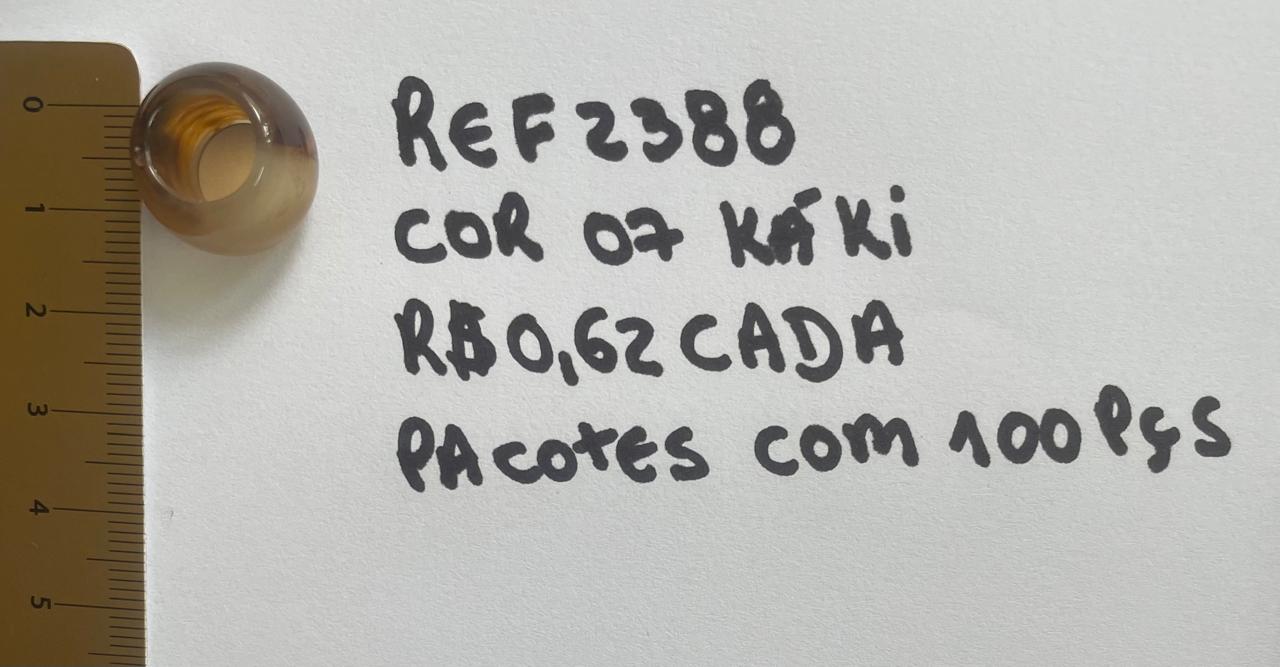 REF 2388
COR 07 KÁKi
R$0,62 CADA
PACOTES COM 100 PÇS
0
1
2
3
4
5